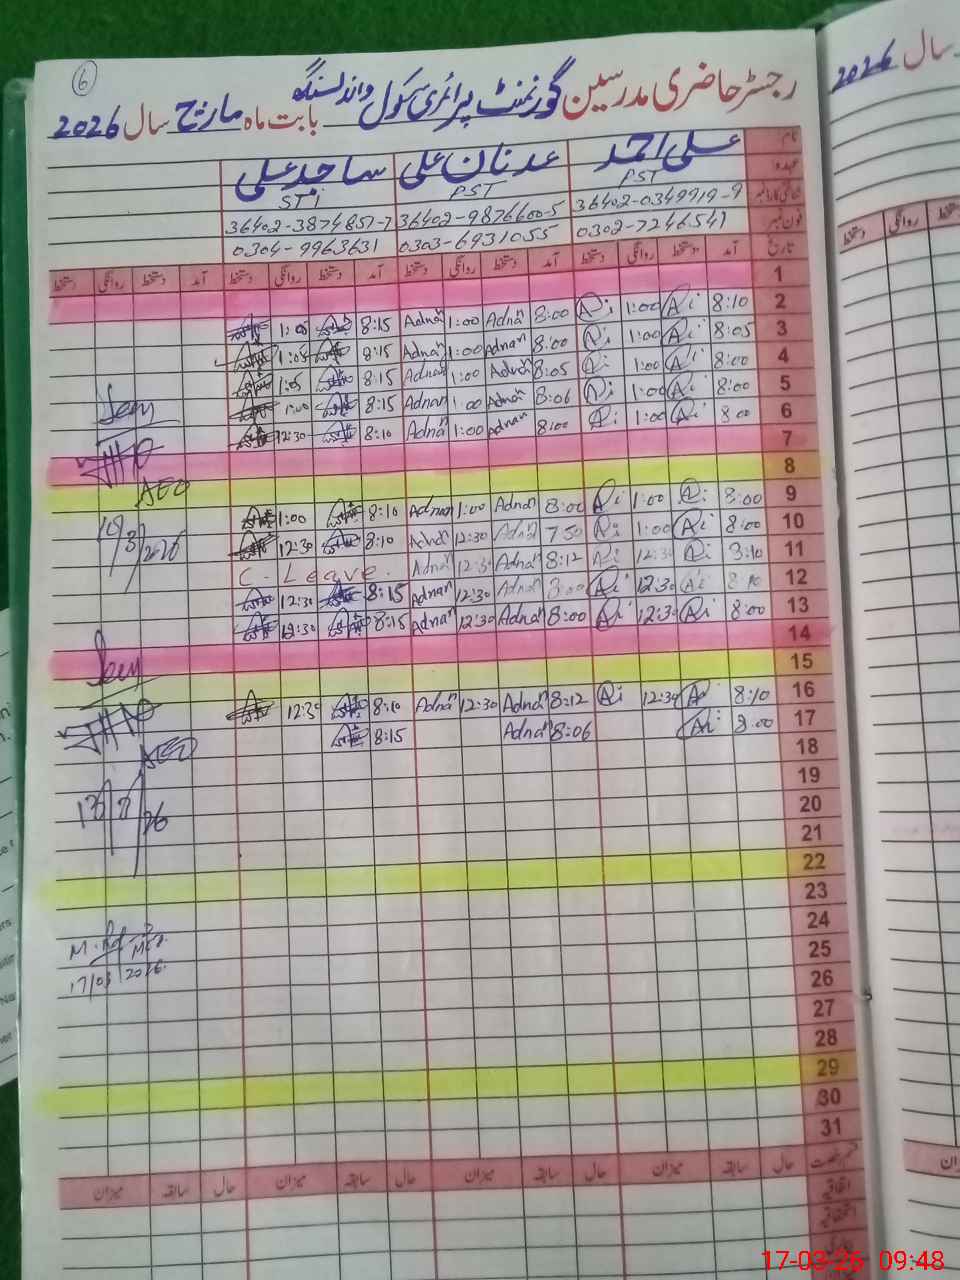 6
رجسٹر حاضری مدرسین گورنمنٹ پرائمری سکول واندلسنگھ بابت ماہ مارچ سال 2026
سال 2026
نام علی احمد عدنان علی ساجد علی
عہدہ PST PST STI
شناختی کارڈ نمبر 36402-0349919-9 36402-9876600-5 36402-3874857-7
فون نمبر 0302-7246541 0303-6931055 0304-9963631
تاریخ آمد دستخط روانگی دستخط آمد دستخط روانگی دستخط آمد دستخط روانگی دستخط آمد دستخط روانگی دستخط
1
2 8:10 Ali 1:00 Ali 8:00 Adnan 1:00 Adnan 8:15 1:05
3 8:05 Ali 1:00 Ali 8:00 Adnan 1:00 Adnan 8:15 1:05
4 8:00 Ali 1:00 Ali 8:05 Adnan 1:00 Adnan 8:15 1:05
5 8:00 Ali 1:00 Ali 8:06 Adnan 1:00 Adnan 8:15 1:00
6 8:00 Ali 1:00 Ali 8:00 Adnan 1:00 Adnan 8:10 12:30
7
8
9 8:00 Ali 1:00 Ali 8:00 Adnan 1:00 Adnan 8:10 1:00
10 8:00 Ali 1:00 Ali 7:50 Adnan 12:30 Adnan 8:10 12:30
11 8:10 Ali 12:30 Ali 8:12 Adnan 12:30 Adnan C. Leave.
12 8:10 Ali 12:30 Ali 8:00 Adnan 12:30 Adnan 8:15 12:30
13 8:00 Ali 12:30 Ali 8:00 Adnan 12:30 Adnan 8:15 12:30
14
15
16 8:10 Ali 12:30 Ali 8:12 Adnan 12:30 Adnan 8:10 12:30
17 8:00 Ali 8:06 Adnan 8:15
18
19
20
21
22
23
24
25
26
27
28
29
30
31
AEO
AEO
17/03/2026
حال سابقہ میزان حال سابقہ میزان حال سابقہ میزان حال سابقہ میزان
اتفاقیہ
17-03-26 09:48